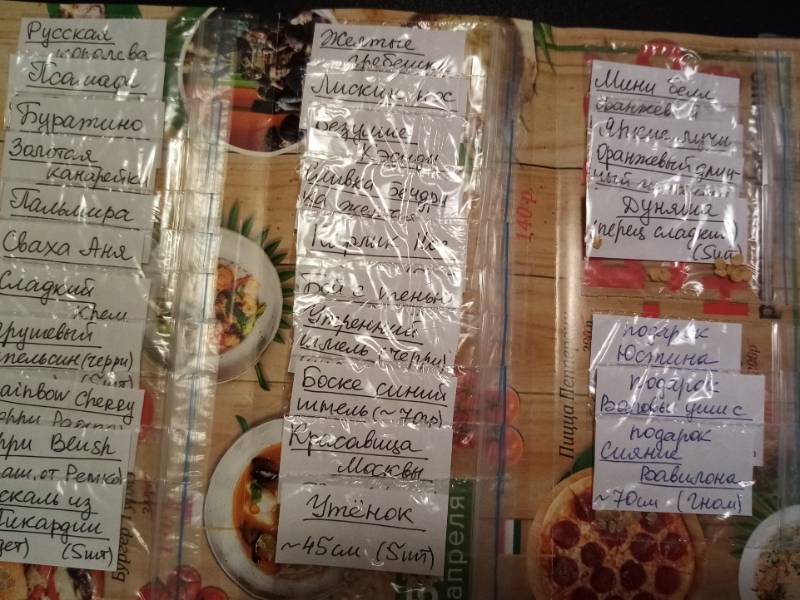 Русская
королева
Псамади
Буратино
Золотая
канарейка
Пальмира
Сваха Аня
Сладкий
крем
Грушевый
апельсин (черри)
(5шт)
Rainbow Cherry
Черри Blush
Ремко)
из
Пикардии
(5шт)
Желтые
гребешки
Лискин нос
Безумие
Кэсиди
Сливка
желтая
Карлик
Бой с тенью
Утренний
шмель (черри)
Боске синий
шмель (~70гр)
Красавица
Москвы
Утёнок
~45см (5шт)
Мини белл
оранжевый
Яркие лучи
Оранжевый
Дуняша
(перец сладкий)
(5шт)
подарок
Юстина
подарок
Воловьи уши с
подарок
Сияние
Вавилона
~70см (гном)
140 р.
Пицца Пепперони
апреля